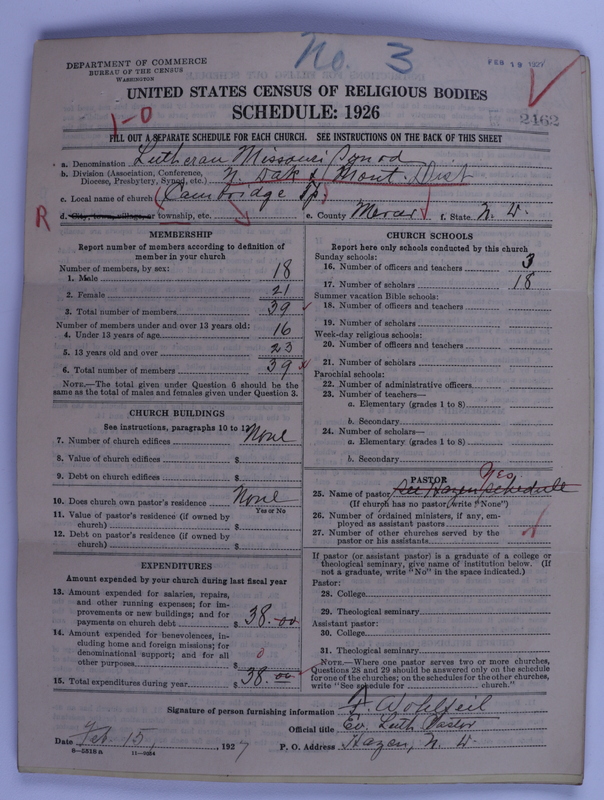 No. 3
DEPARTMENT OF COMMERCE
BUREAU OF THE CENSUS
WASHINGTON
FEB 19 1927
UNITED STATES CENSUS OF RELIGIOUS BODIES
SCHEDULE: 1926
2462
1-0
FILL OUT A SEPARATE SCHEDULE FOR EACH CHURCH. SEE INSTRUCTIONS ON THE BACK OF THIS SHEET
a. Denomination Lutheran Missouri Synod
b. Division (Association, Conference, Diocese, Presbytery, Synod, etc.) N. Dak & Mont. Dist
c. Local name of church (Cambridge Tp)
R
d. City, town, village, or township, etc. e. County Mercer f. State N. D.
MEMBERSHIP
Report number of members according to definition of member in your church
Number of members, by sex:
1. Male 18
2. Female 21
3. Total number of members 39
Number of members under and over 13 years old:
4. Under 13 years of age 16
5. 13 years old and over 23
6. Total number of members 39
NOTE.—The total given under Question 6 should be the same as the total of males and females given under Question 3.
CHURCH BUILDINGS
See instructions, paragraphs 10 to 12
7. Number of church edifices None
8. Value of church edifices $
9. Debt on church edifices $
10. Does church own pastor's residence None
Yes or No
11. Value of pastor's residence (if owned by church) $
12. Debt on pastor's residence (if owned by church) $
EXPENDITURES
Amount expended by your church during last fiscal year
13. Amount expended for salaries, repairs, and other running expenses; for improvements or new buildings; and for payments on church debt $ 38.00
14. Amount expended for benevolences, including home and foreign missions; for denominational support; and for all other purposes $ 0
15. Total expenditures during year $ 38.00
CHURCH SCHOOLS
Report here only schools conducted by this church
Sunday schools:
16. Number of officers and teachers 3
17. Number of scholars 18
Summer vacation Bible schools:
18. Number of officers and teachers
19. Number of scholars
Week-day religious schools:
20. Number of officers and teachers
21. Number of scholars
Parochial schools:
22. Number of administrative officers
23. Number of teachers—
a. Elementary (grades 1 to 8)
b. Secondary
24. Number of scholars—
a. Elementary (grades 1 to 8)
b. Secondary
PASTOR
Yes
25. Name of pastor See Hazen Schedule
(If church has no pastor, write "None")
26. Number of ordained ministers, if any, employed as assistant pastors
27. Number of other churches served by the pastor or his assistants
If pastor (or assistant pastor) is a graduate of a college or theological seminary, give name of institution below. (If not a graduate, write "No" in the space indicated.)
Pastor:
28. College
29. Theological seminary
Assistant pastor:
30. College
31. Theological seminary
NOTE.—Where one pastor serves two or more churches, Questions 28 and 29 should be answered only on the schedule for one of the churches; on the schedules for the other churches, write "See schedule for church."
Signature of person furnishing information Wohlfeil
Official title Ev. Luth Pastor
Date Feb. 15, 1927
P. O. Address Hazen, N. D.
8—5318 a 11—9934